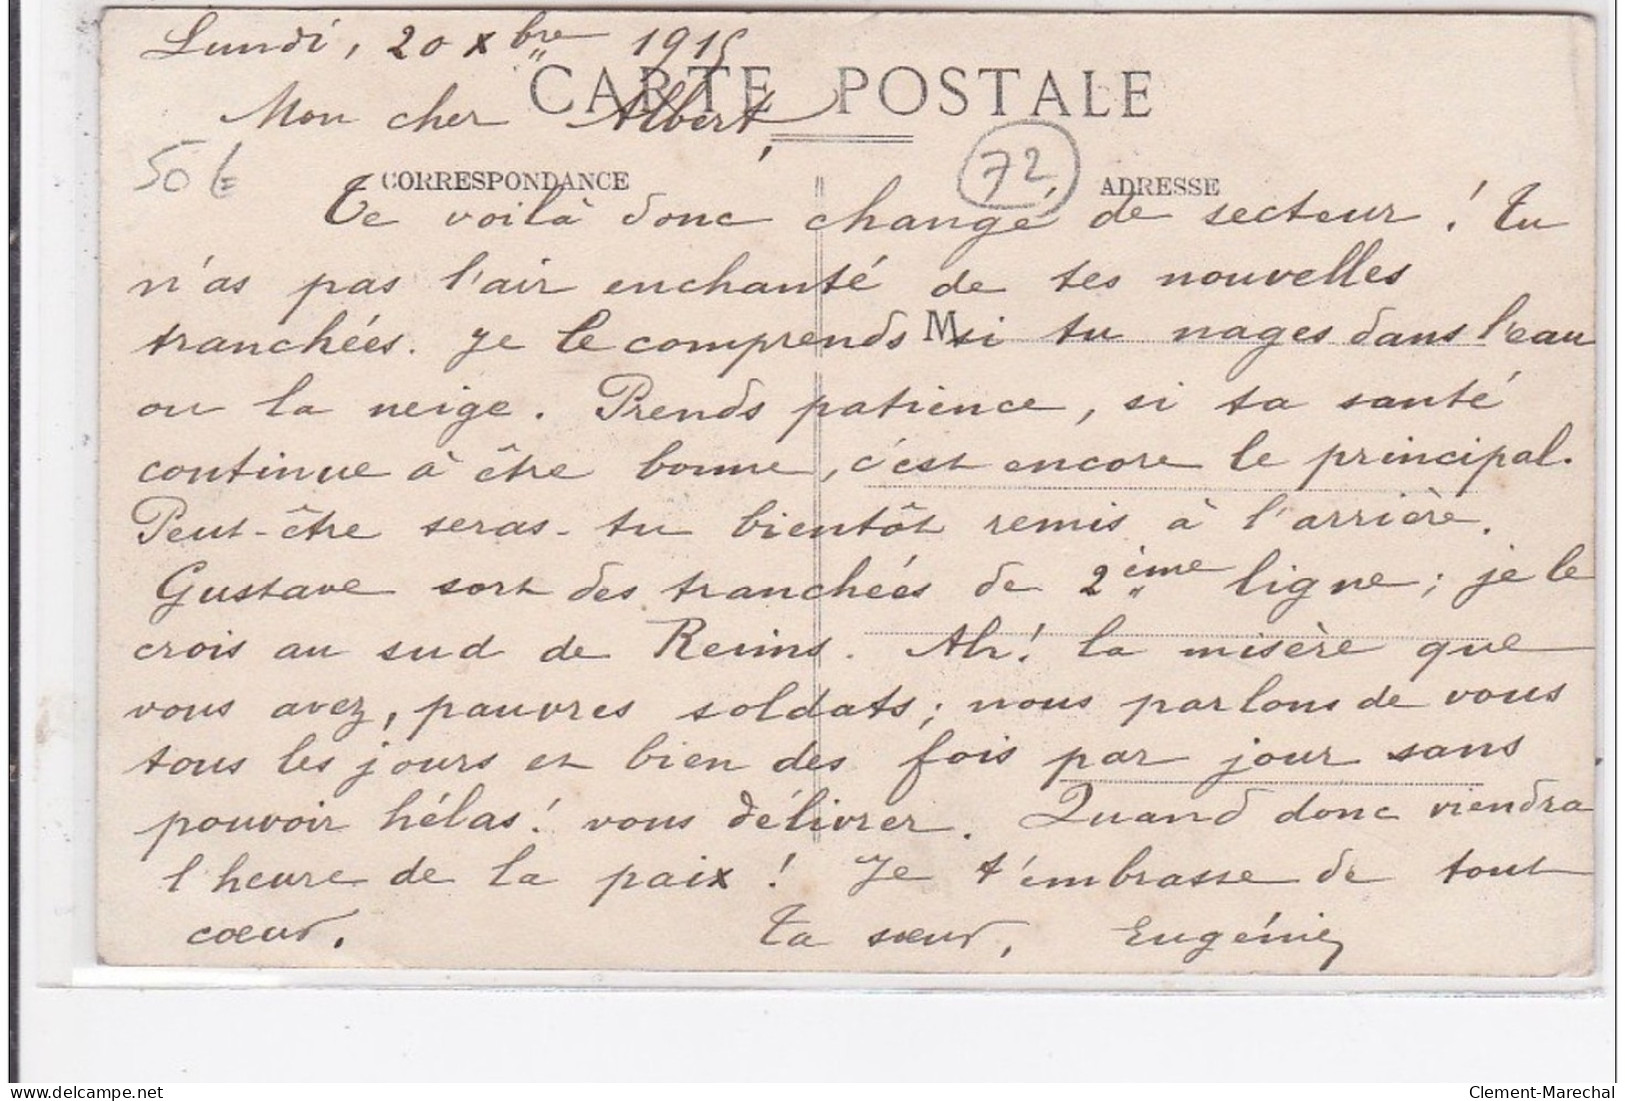 Lundi, 20 xbre 1915
CARTE POSTALE
Mon cher Albert,
50 €
CORRESPONDANCE
72
ADRESSE
Te voilà donc changé de secteur ! Tu
n'as pas l'air enchanté de tes nouvelles
tranchées. Je le comprends si tu nages dans l'eau
M
ou la neige. Prends patience, si ta santé
continue à être bonne, c'est encore le principal.
Peut-être seras-tu bientôt remis à l'arrière.
Gustave sort des tranchées de 2ème ligne ; je le
crois au sud de Reims. Ah ! la misère que
vous avez, pauvres soldats ; nous parlons de vous
tous les jours et bien des fois par jour sans
pouvoir hélas ! vous délivrer. Quand donc viendra
l'heure de la paix ! Je t'embrasse de tout
cœur. Ta sœur, Eugénie
delcampe.net
Clement-Marechal